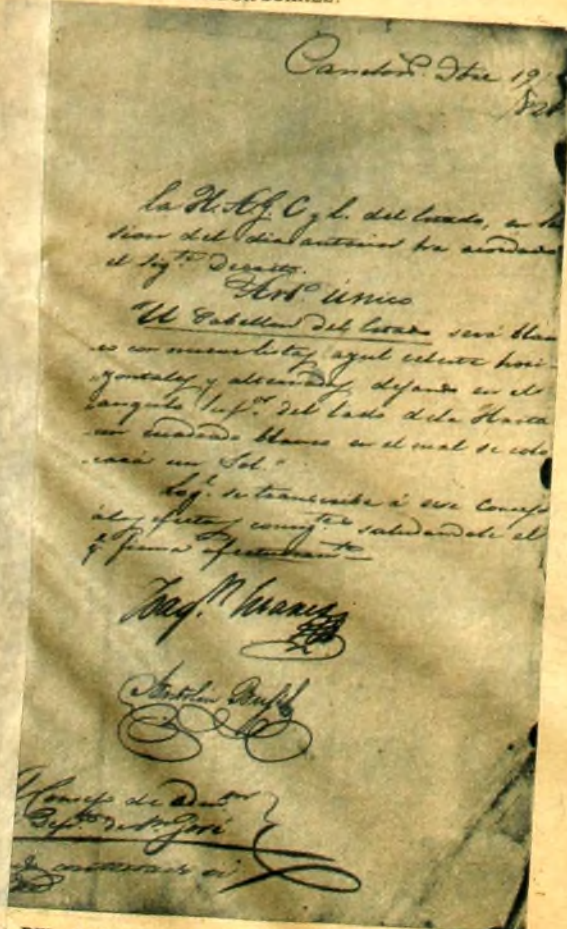 Canelon.s Dbre 19
1828
la H. A. G. C y L. del Estado, en se
sion del dia anterior ha acordado
el sig.te Decreto.
Art.o Unico
"El Pabellon del Estado será blan
co con nueve listas azul celeste hori-
zontales y alternadas, dejando en el
angulo sup.or del lado dela Hasta
un cuadrado blanco en el cual se colo
cará un Sol."
Lo q.e se transcribe á ese Consejo
á los efectos consig.tes saludandole el
q.e firma afectuosam.te
Joaq.n Suarez
Consejo de Adm.on
Dep.to de S.n José